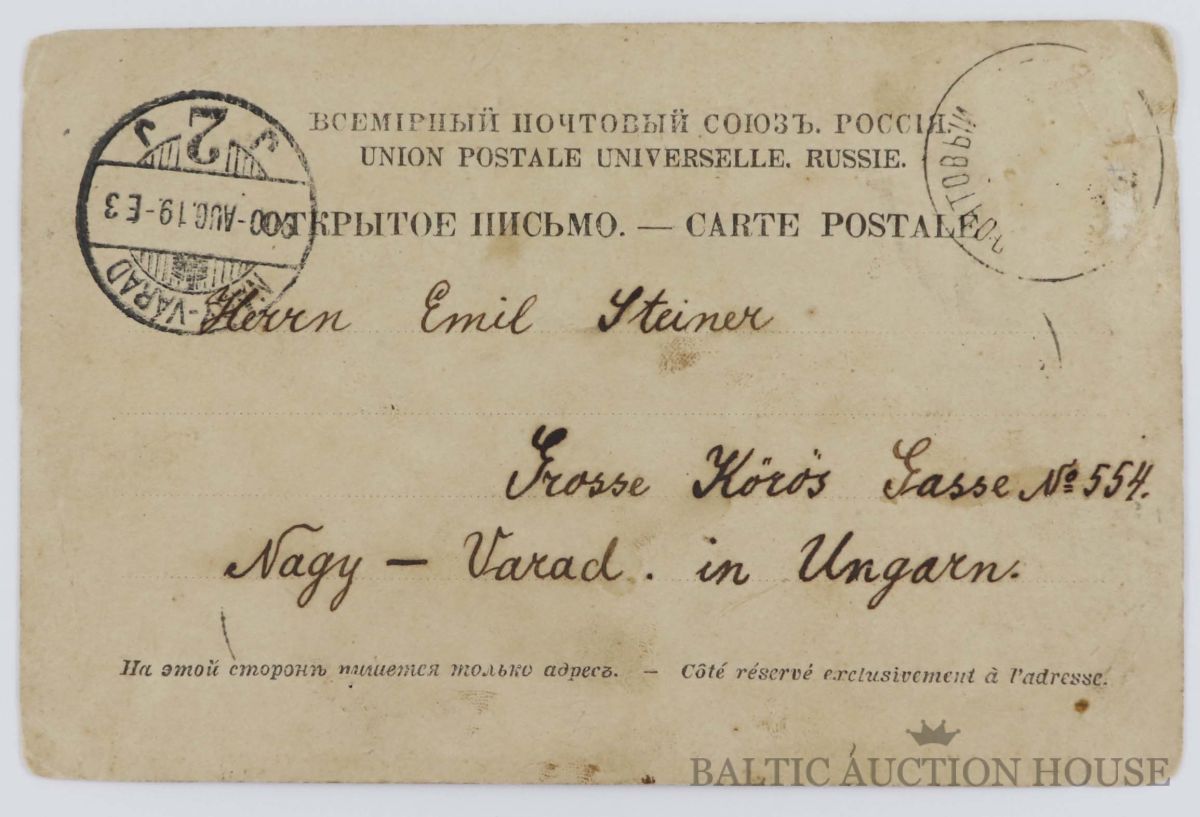 ВСЕМІРНЫЙ ПОЧТОВЫЙ СОЮЗЪ. РОССІЯ.
UNION POSTALE UNIVERSELLE. RUSSIE.
ОТКРЫТОЕ ПИСЬМО. — CARTE POSTALE
2
J J
00-AUG.19-E3
-VÁRAD
ПОЧТОВЫЙ
Herrn Emil Steiner
Grosse Körös Gasse № 554.
Nagy — Varad. in Ungarn.
На этой сторонѣ пишется только адресъ. — Côté réservé exclusivement à l'adresse.
BALTIC AUCTION HOUSE